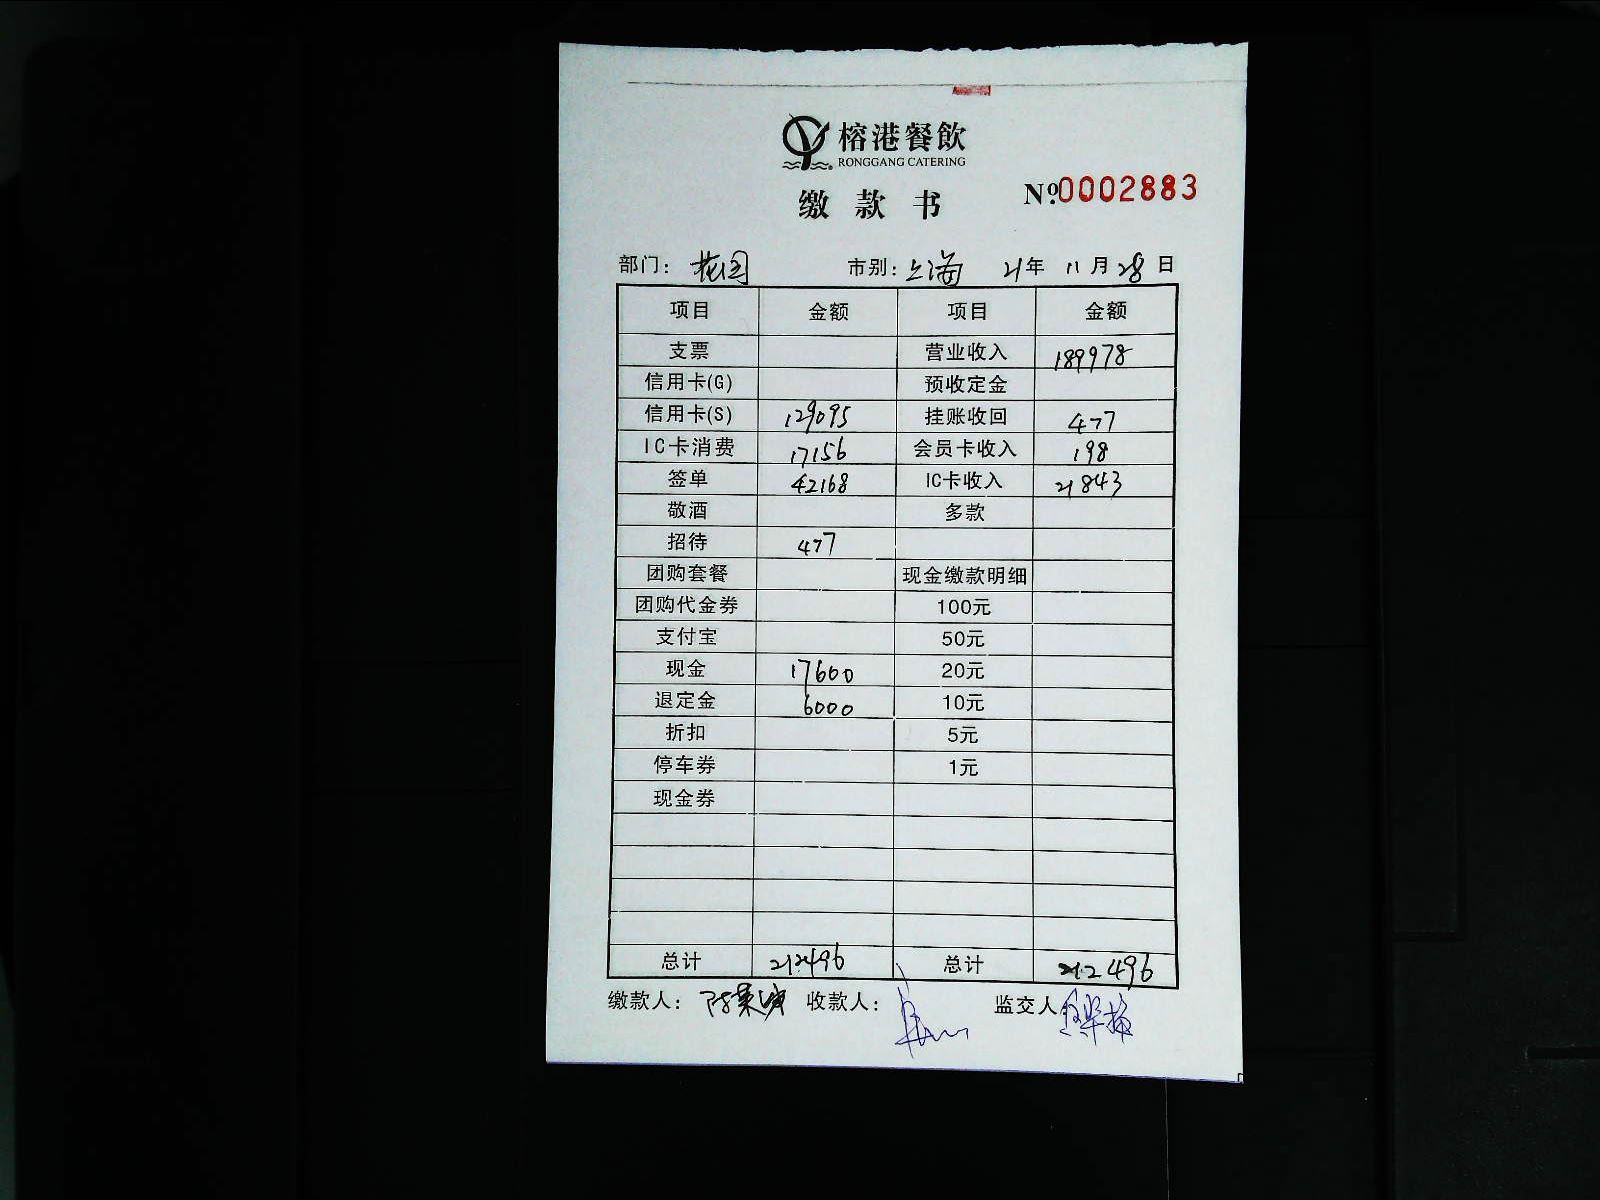 榕港餐飲
RONGGANG CATERING
缴款书
№:0002883
部门: 花园 市别: 上海 21年 11月 28日
项目 金额 项目 金额
支票 营业收入 189978
信用卡(G) 预收定金
信用卡(S) 129095 挂账收回 477
IC卡消费 17156 会员卡收入 198
签单 42168 IC卡收入 21843
敬酒 多款
招待 477
团购套餐 现金缴款明细
团购代金券 100元
支付宝 50元
现金 17600 20元
退定金 6000 10元
折扣 5元
停车券 1元
现金券
总计 212496 总计 212496
缴款人: 收款人: 监交人